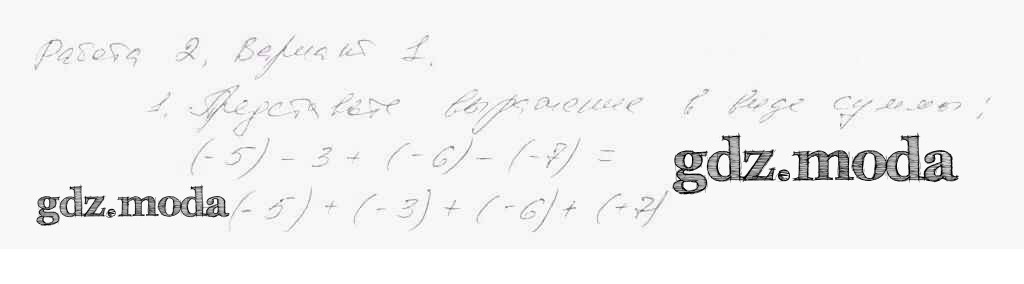 Работа 2. Вариант 1.
1. Представьте выражение в виде суммы:
(-5) - 3 + (-6) - (-7) =
gdz.moda
gdz.moda
(-5) + (-3) + (-6) + (+7)